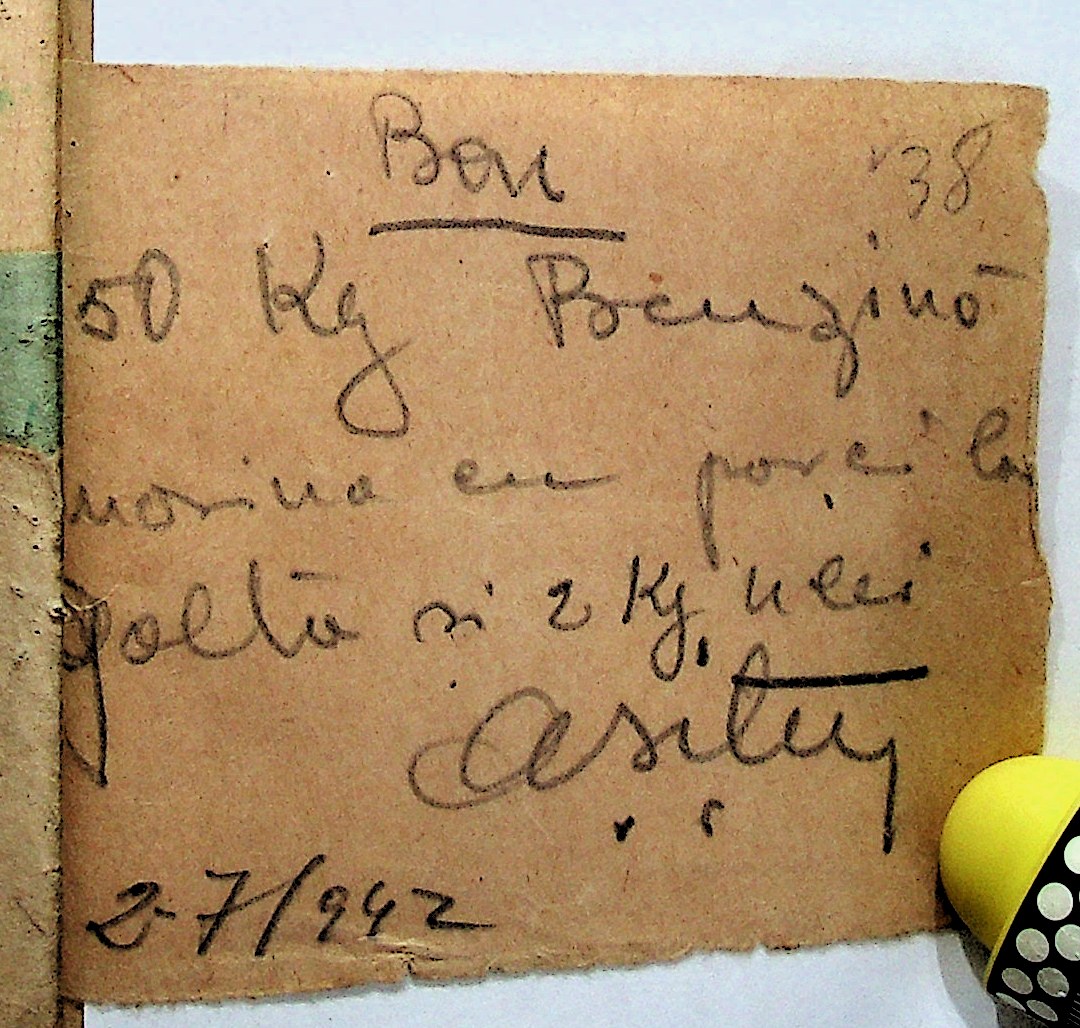 Bon
38
50 Kg Benzină
mașina cu porci la
baltă și 2 Kg ulei
2-7/942